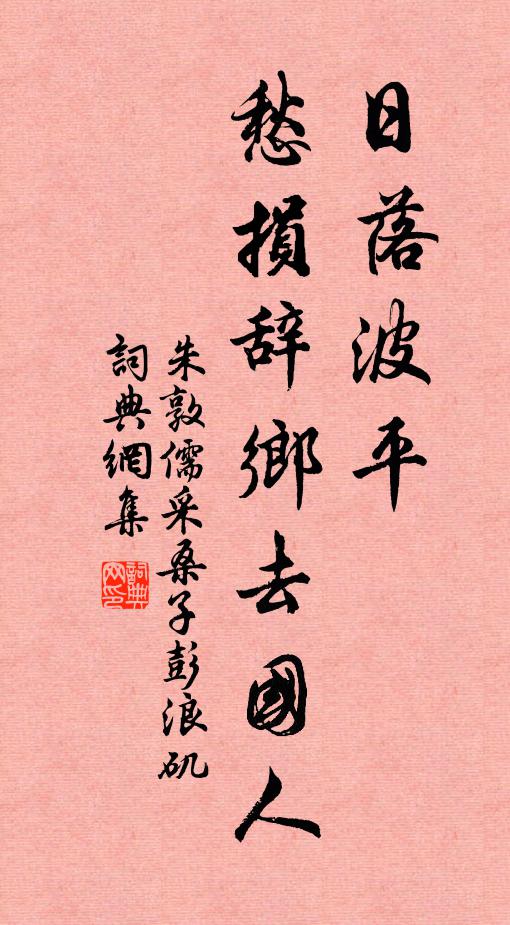 日落波平
愁損辞鄉去國人
朱敦儒采桑子彭浪矶
詞典網集
詞典网印